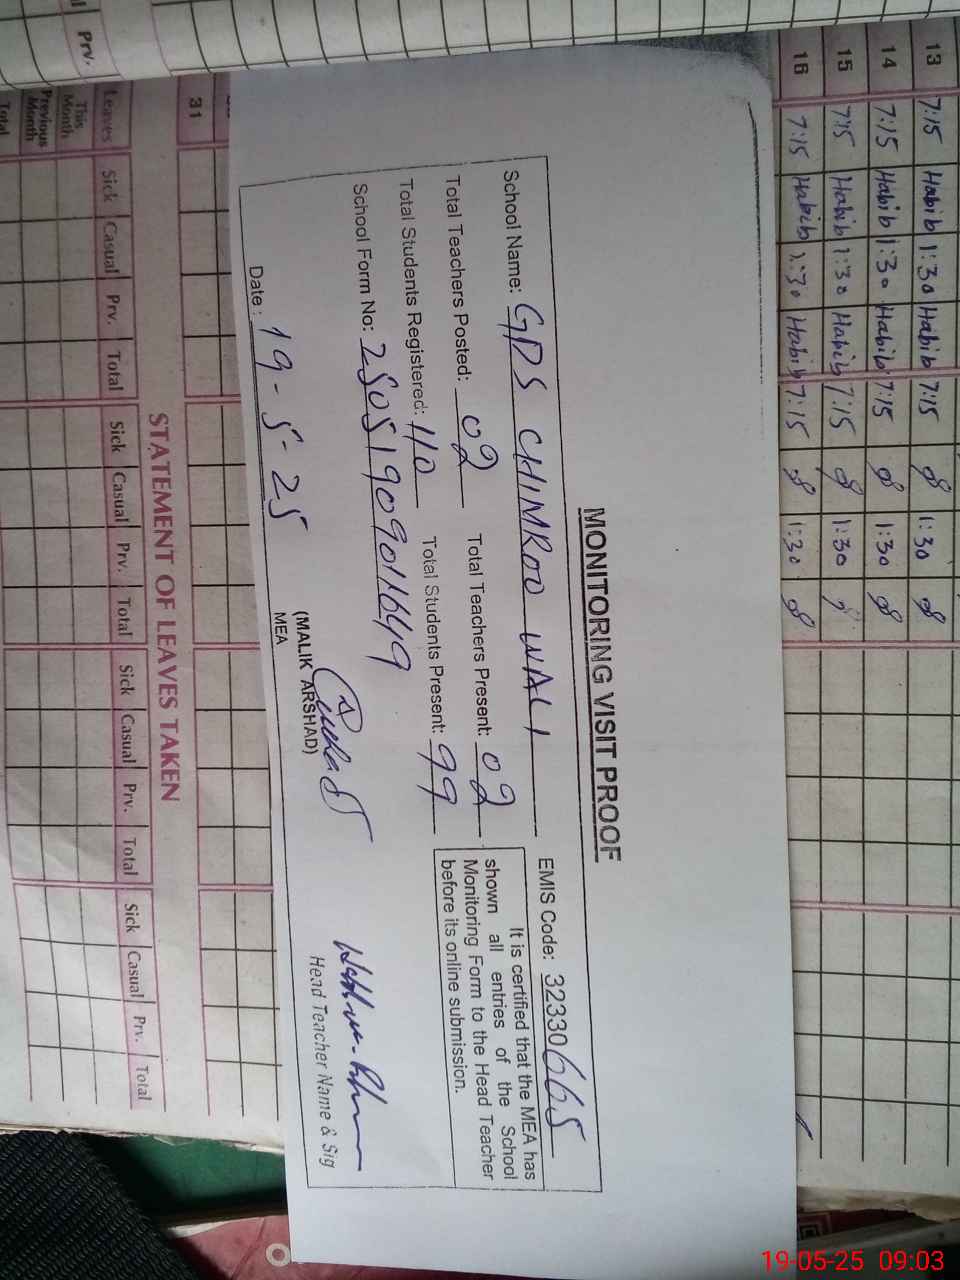 13 7:15 Habib 1:30 Habib 7:15 1:30
14 7:15 Habib 1:30 Habib 7:15 1:30
15 7:15 Habib 1:30 Habib 7:15 1:30
16 7:15 Habib 1:30 Habib 7:15 1:30
MONITORING VISIT PROOF
School Name: GPS CHIMROO WALI EMIS Code: 32330665
Total Teachers Posted: 02 Total Teachers Present: 02
Total Students Registered: 110 Total Students Present: 99
School Form No: 2505190909011649
It is certified that the MEA has
shown all entries of the School
Monitoring Form to the Head Teacher
before its online submission.
Date: 19-5-25
(MALIK ARSHAD)
MEA
Head Teacher Name & Sig
31
STATEMENT OF LEAVES TAKEN
Leaves Sick Casual Prv. Total Sick Casual Prv. Total Sick Casual Prv. Total Sick Casual Prv. Total
This Month
Previous Month
Total
Prv.
19-05-25 09:03